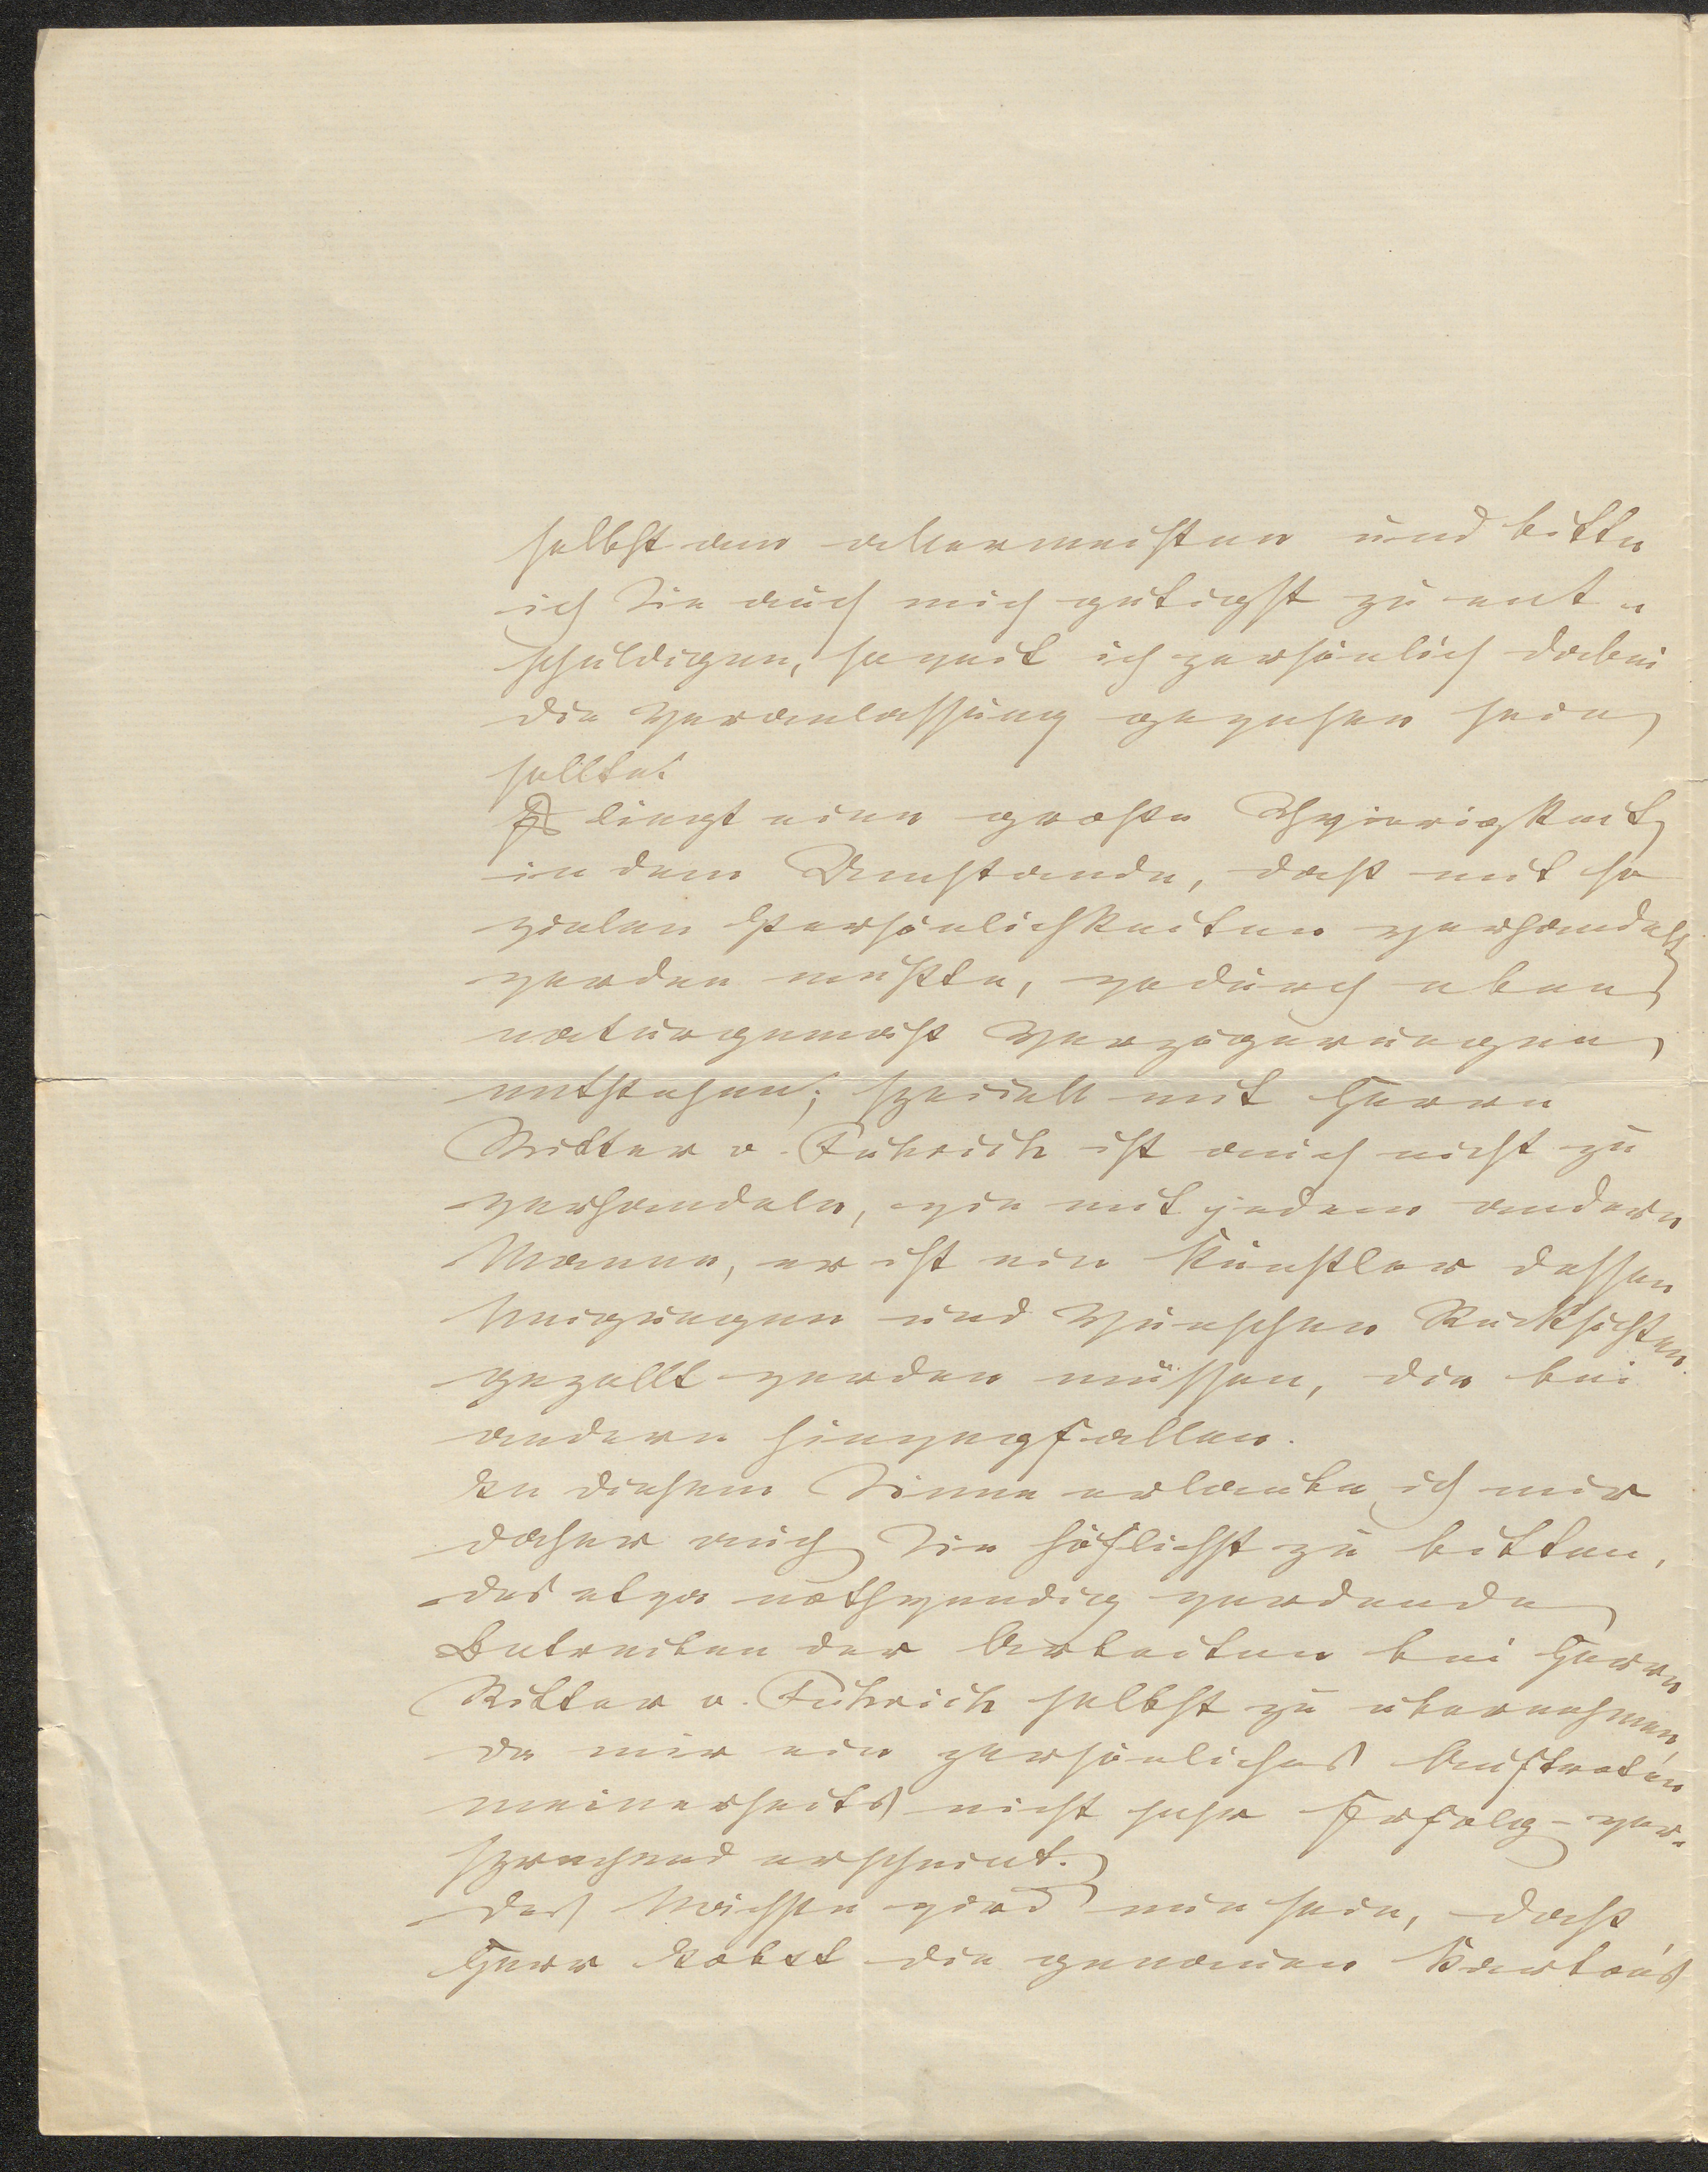 selbst am allermeisten und bitte
ich Sie auch mich gütigst zu ent-
schuldigen, soweit ich persönlich dabei
die Veranlassung gewesen sein
sollte.
Es liegt eine große Schwierigkeit
in dem Umstande, daß mit so
vielen Persönlichkeiten verhandelt
werden mußte, wodurch eben
naturgemäß Verzögerungen
entstehen; speciell mit Herrn
Ritter v. Führich ist auch nicht zu
verhandeln, wie mit jedem andern
Manne, er ist ein Künstler dessen
Neigungen und Wünschen Rücksichten
gezollt werden müssen, die bei
andern hinwegfallen.
In diesem Sinne erlaube ich mir
daher auch Sie höflichst zu bitten,
das etwa nothwendig werdende
Betreiben der Arbeiten bei Herrn
Ritter v. Führich selbst zu übernehmen,
da mir ein persönliches Auftreten
meinerseits nicht sehr Erfolg-ver-
sprechend erscheint.
Das Nächste wird nun sein, daß
Herr Jobst die genauen Karton's